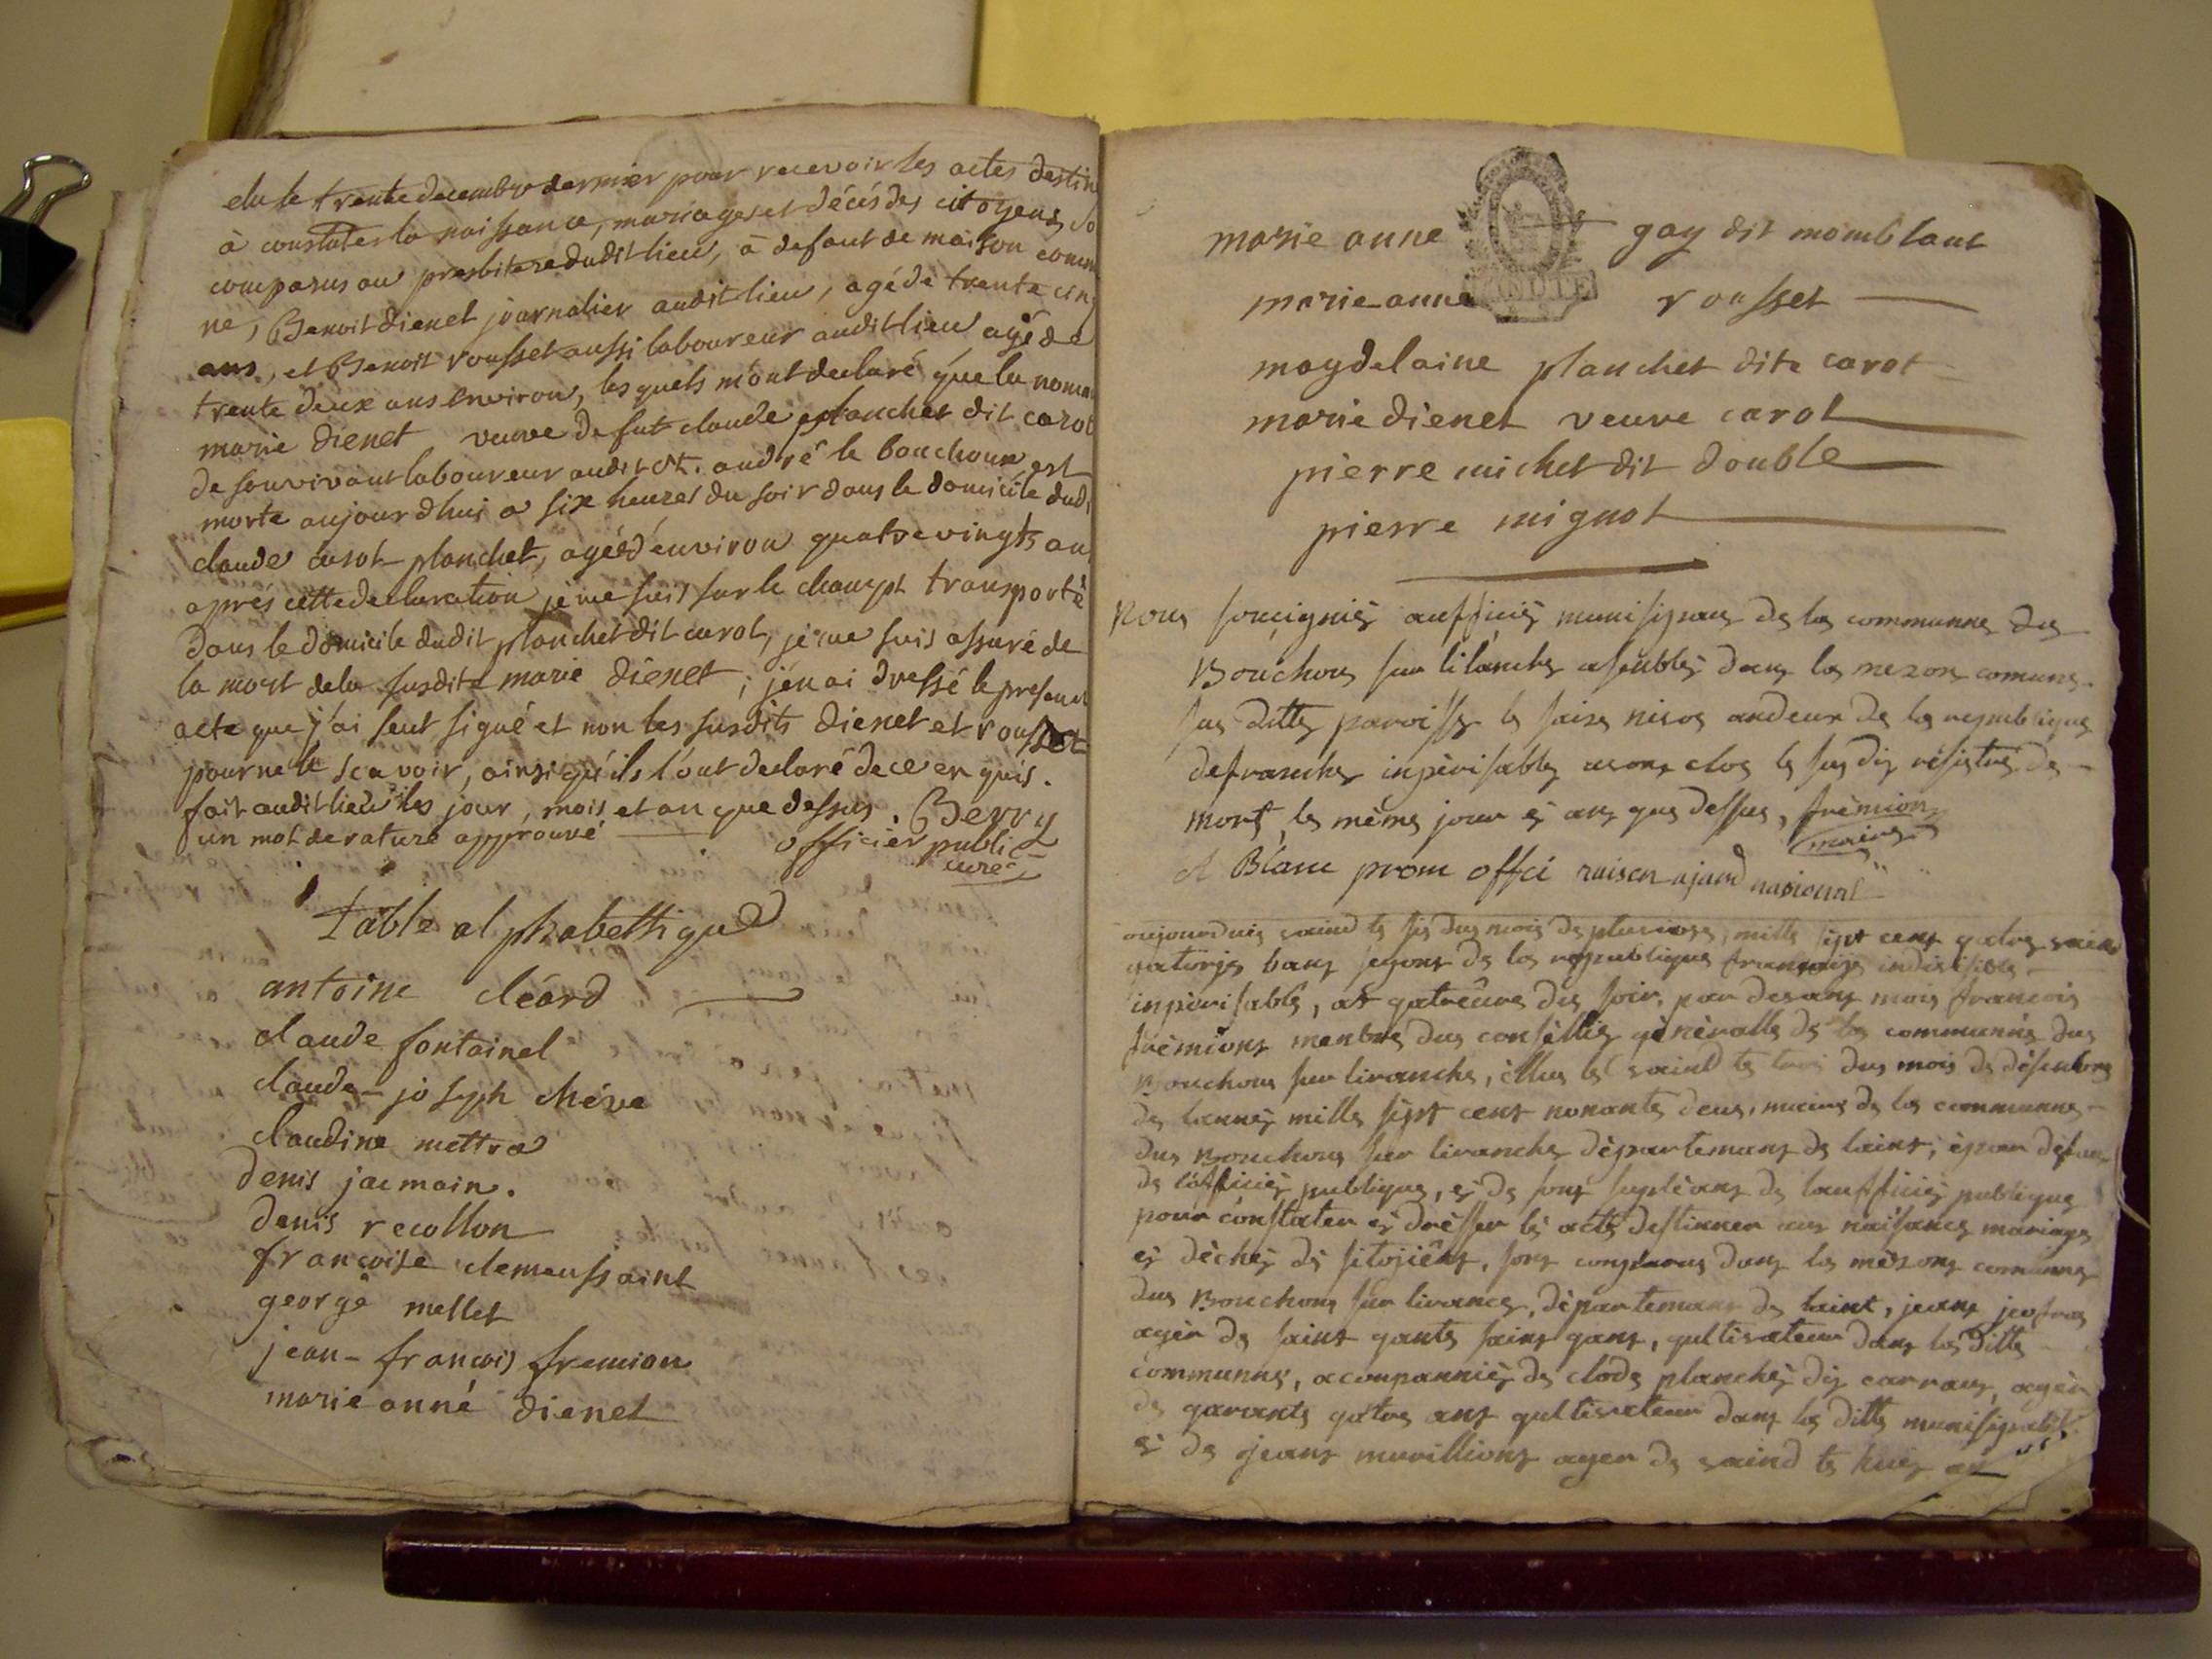 elu le trente decembre dernier pour recevoir les actes destin
à constater la naissance, mariages et décés des citoyens, so
comparus au presbitere dudit lieu, à defaut de maison comm
ne, Benoit dienet journalier audit lieu, agé de trente cinq
ans, et Benoit rousset aussi laboureur audit lieu agé de
trente deux ans environ, les quels m'ont declaré que la nomm
marie dienet veuve de fut claude planchet dit carot
de son vivant laboureur audit st. andré le bouchoux est
morte aujourdhui a six heures du soir dans le domicile dud
claude carot planchet, agée d'environ quatre vingts an
aprés cette declaration je me suis sur le champt transporté
dans le domicile dudit planchet dit carot, je me suis assuré de
la mort de la susdite marie dienet ; j'en ai dressé le present
acte que j'ai seul signé et non les susdits dienet et rousset
pour ne le scavoir, ainsi qu'ils l'ont declaré de ce enquis.
fait audit lieu les jour, mois et an que dessus. Berry
un mot de rature approuvé officier public
curé
table alphabettique
antoine cléard
claude fontainel
claude-joseph chéve
claudine mettra
denis jacmain.
denis recollon
francoise clemensaint
george mellet
jean-francois fremion
marie anne dienet
marie anne gay dit momblant
marie anne rousset
magdelaine planchet dite carot
marie dienet veuve carot
pierre michet dit double
pierre mignot
nous soucigniés aufficiés munisipaus de la communne du
Bouchous sur asenblés dans la mezon comune
sus ditte paroisse le saize nivos an deux de la republique
defranche inpèrisable avons clos le sus diz de
mort, le même jour é an que dessus, frèmion
maire
Blanc prom offci nasional
oujourduis vaind te sis du mois de pluviose, mille sept cent quatre vaind
quatorze segont de la republique française indivisible
inpèrisable, at quatreûre du soir, par devant mois francois
frèmiont menbre du conseillie gènèralle de la communne du
Bouchous sur livranche, èllus le vaind te trois du mois de désenbre
de lannés mille sept cent nonante deus, maire de la communne
du Bouchous sur livranche dèpartemant de laint, épar defau
de lofficiés publique, é de sont suplèant de laufficiés publique
pour constater é drèsser les acte destinner aus naisance mariage
é dèchés dé sitojiênt, sont conparus dans la mèzont comunne
du Bouchous sur livrance, dèpartemant de laint, jeant
agér de saint qante saint qant, qultivateur dans la ditte
communne, acompanniés de clode planchés diz carraus, agér
de qarante qatre ant qultivateur dans la ditte munisipalit
é de jeant murilliont ager de vaind te huis an